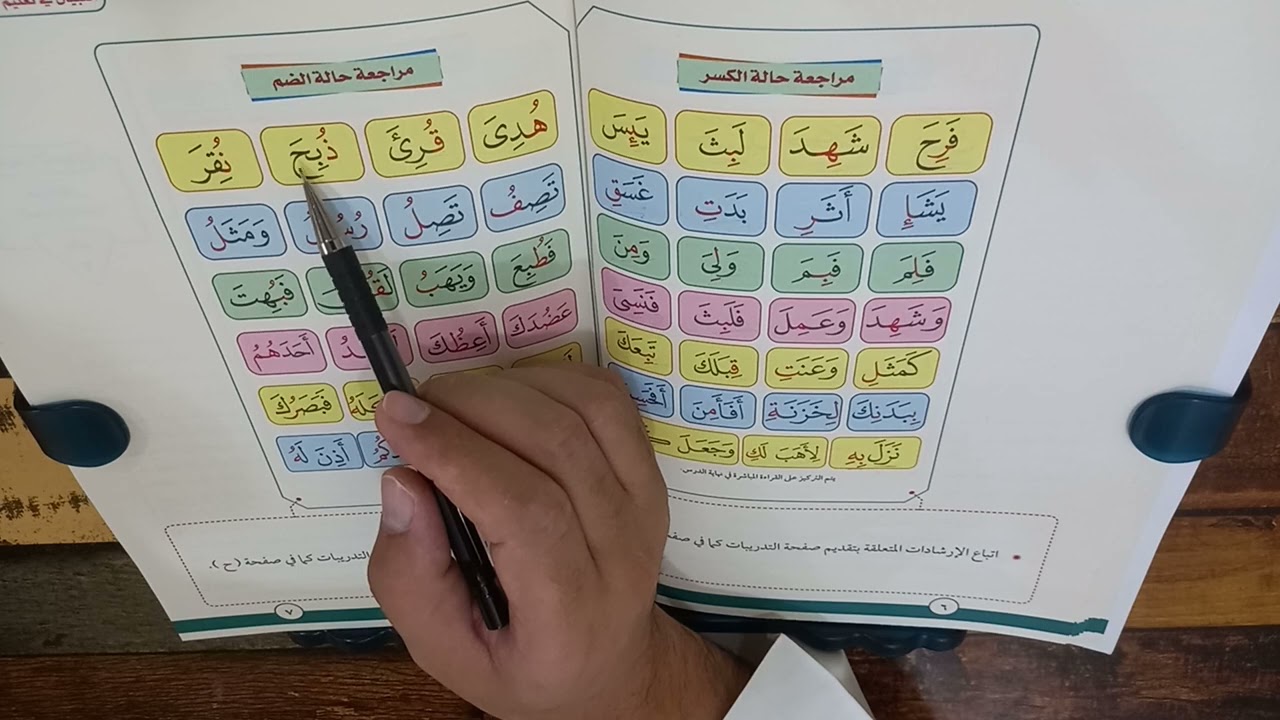 مراجعة حالة الكسر
فَرِحَ شَهِدَ لَبِثَ يَئِسَ
يَشَإِ أَثَرِ بَدَتِ غَسَقِ
فَلِمَ فَبِمَ وَلِىَ وَمِنَ
وَشَهِدَ وَعَمِلَ فَلَبِثَ فَنَسِىَ
كَمَثَلِ وَعَنَتِ قِبَلَكَ تَبِعَكَ
بِبَدَنِكَ لِخَزَنَةِ أَفَأَمِنَ
نَزَلَ بِهِ لِأَهَبَ لَكِ وَجَعَلَ
يتم التركيز على القراءة المباشرة في نهاية الدرس.
اتباع الإرشادات المتعلقة بتقديم صفحة التدريبات كما في
٦
مراجعة حالة الضم
هُدِىَ قُرِئَ ذُبِحَ نُقِرَ
تَصِفُ تَصِلُ وَمَثَلُ
فَطُبِعَ وَيَهَبُ فَبُهِتَ
عَضُدَكَ أَعِظُكَ أَحَدَهُمُ
فَبَصَرُكَ
أَذِنَ لَهُ
التدريبات كما في صفحة (ح).
٧